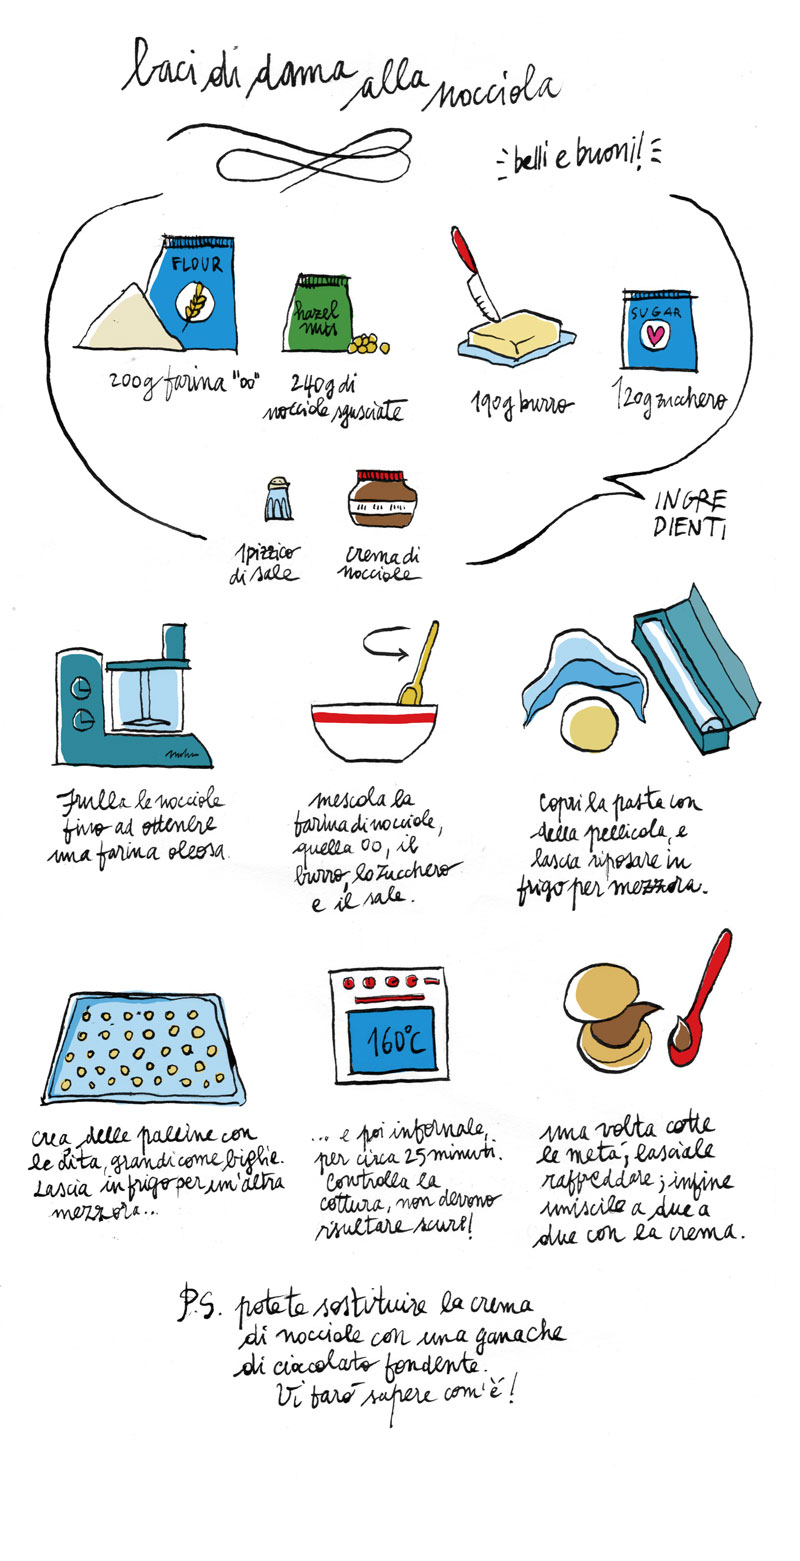 baci di dama alla nocciola
belli e buoni!
FLOUR
hazel
nuts
SUGAR
200g farina "00"
240g di
nocciole sgusciate
190g burro
120g zucchero
INGRE
DIENTI
1 pizzico
di sale
crema di
nocciole
Frulla le nocciole
fino ad ottenere
una farina oleosa.
mescola la
farina di nocciole,
quella 00, il
burro, lo zucchero
e il sale.
copri la pasta con
della pellicola, e
lascia riposare in
frigo per mezzora.
160°C
crea delle palline con
le dita, grandi come biglie.
Lascia in frigo per un'altra
mezzora...
... e poi infornale,
per circa 25 minuti.
Controlla la
cottura, non devono
risultare scure!
una volta cotte
le metà, lasciale
raffreddare; infine
uniscile a due a
due con la crema.
P.S. potete sostituire la crema
di nocciole con una ganache
di cioccolato fondente.
Vi farò sapere com'è!